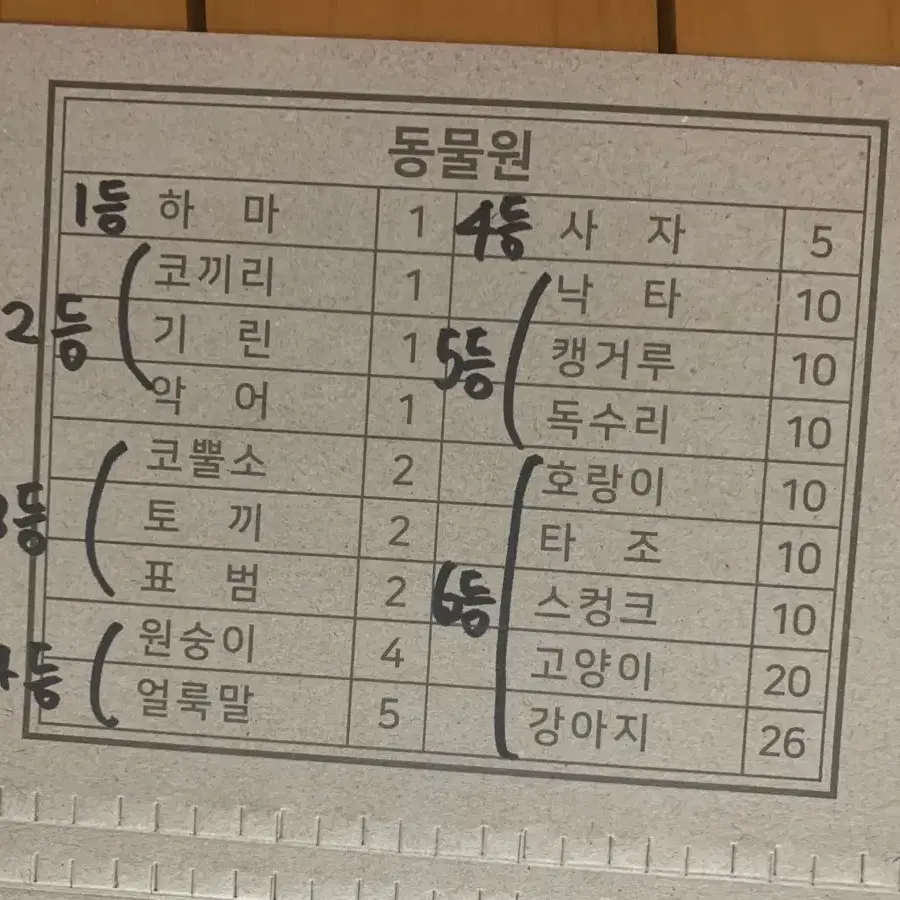 동물원
1등 하마 1 4등 사자 5
코끼리 1 낙타 10
2등 기린 1 5등 캥거루 10
악어 1 독수리 10
코뿔소 2 호랑이 10
3등 토끼 2 타조 10
표범 2 6등 스컹크 10
원숭이 4 고양이 20
4등 얼룩말 5 강아지 26